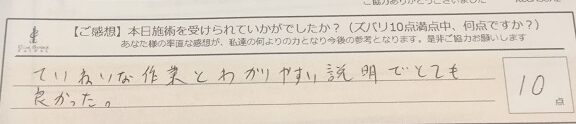 ご協力ありがとうございました
【ご感想】本日施術を受けられていかがでしたか？（ズバリ10点満点中、何点ですか？）
あなた様の率直な感想が、私達の何よりの力となり今後の参考となります。是非ご協力お願いします
ていねいな作業とわかりやすい説明でとても
良かった。
10
点